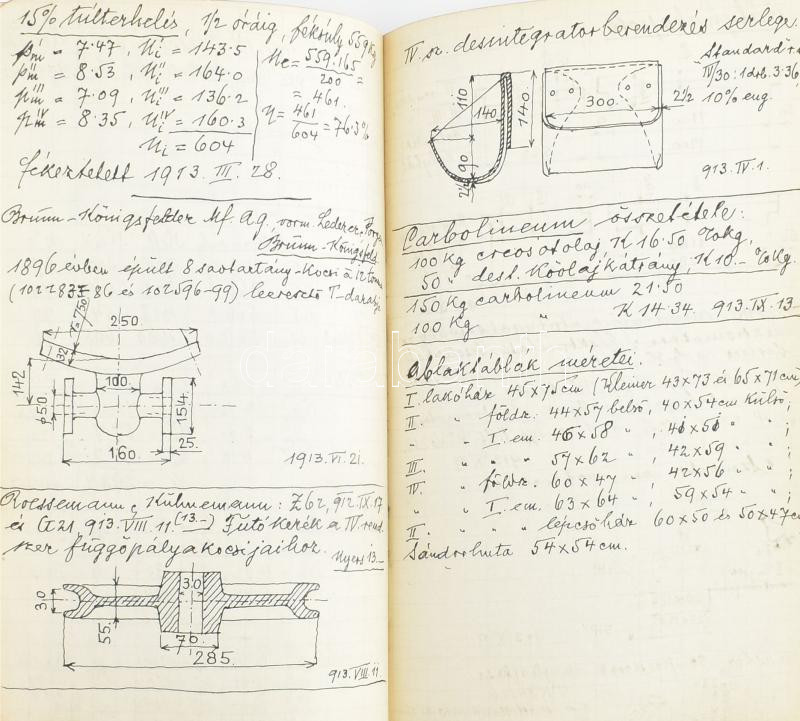 15% túlterhelés, 1/2 óráig, féksúly 559 kg
p'm = 7·47, N'i = 143·5
p''m = 8·53, N''i = 164·0
p'''m = 7·09, N'''i = 136·2
pIVm = 8·35, NIVi = 160·3
Ni = 604
Ne = 559.165 / 200 =
= 461.
η = 461 / 604 = 76·3%
fékeztetett 1913. III. 28.
Brünn-Königsfelder Mf. A.g., vorm. Lederer,
Brünn-Königsfeld
1896 évben épült 8 savtartány-kocsi à 12 tonna
(102283-86 és 102596-99) leeresztő T-darabja
250.
r=750
32
142
100.
φ50.
154.
25.
160.
1913. VI. 21.
Roessemann & Kühnemann: Z62, 912. IX. 17
és G21, 913. VIII. 11. (13.-) Futó kerék a IV. rend-
szer függőpálya kocsijaihoz. Nyers 13.-
30
30.
55.
70.
285.
913. VIII. 11.
IV. sz. desintegrator berendezés serlege.
Standard
IV/30: 1 drb. 3·36
10% eng.
110
140
140.
90
2½
300.
2½
913. IV. 1.
Carbolineum összetétele:
100 kg creosotolaj K 16·50 % kg,
50 " dest. Kőolajkátrány, K 10.- % kg.
150 kg carbolineum 21·50
100 kg " K 14·34. 913. IX. 13.
Ablaktáblák méretei.
I. lakóház 45x75 cm (Kleiner 43x73 és 65x71 cm)
II. " földsz. 44x57 belső, 40x54 cm külső;
" " I. em. 46x58 " , 40x50 " " ;
III. " " 57x62 " , 42x59 " " ;
IV. " földsz. 60x47 " , 42x56 " " ;
" " I. em. 63x64 " , 59x54 " " ;
II. " " lépcsőház 60x50 és 50x47 cm
Sándorhuta 54x54 cm.
darabanth